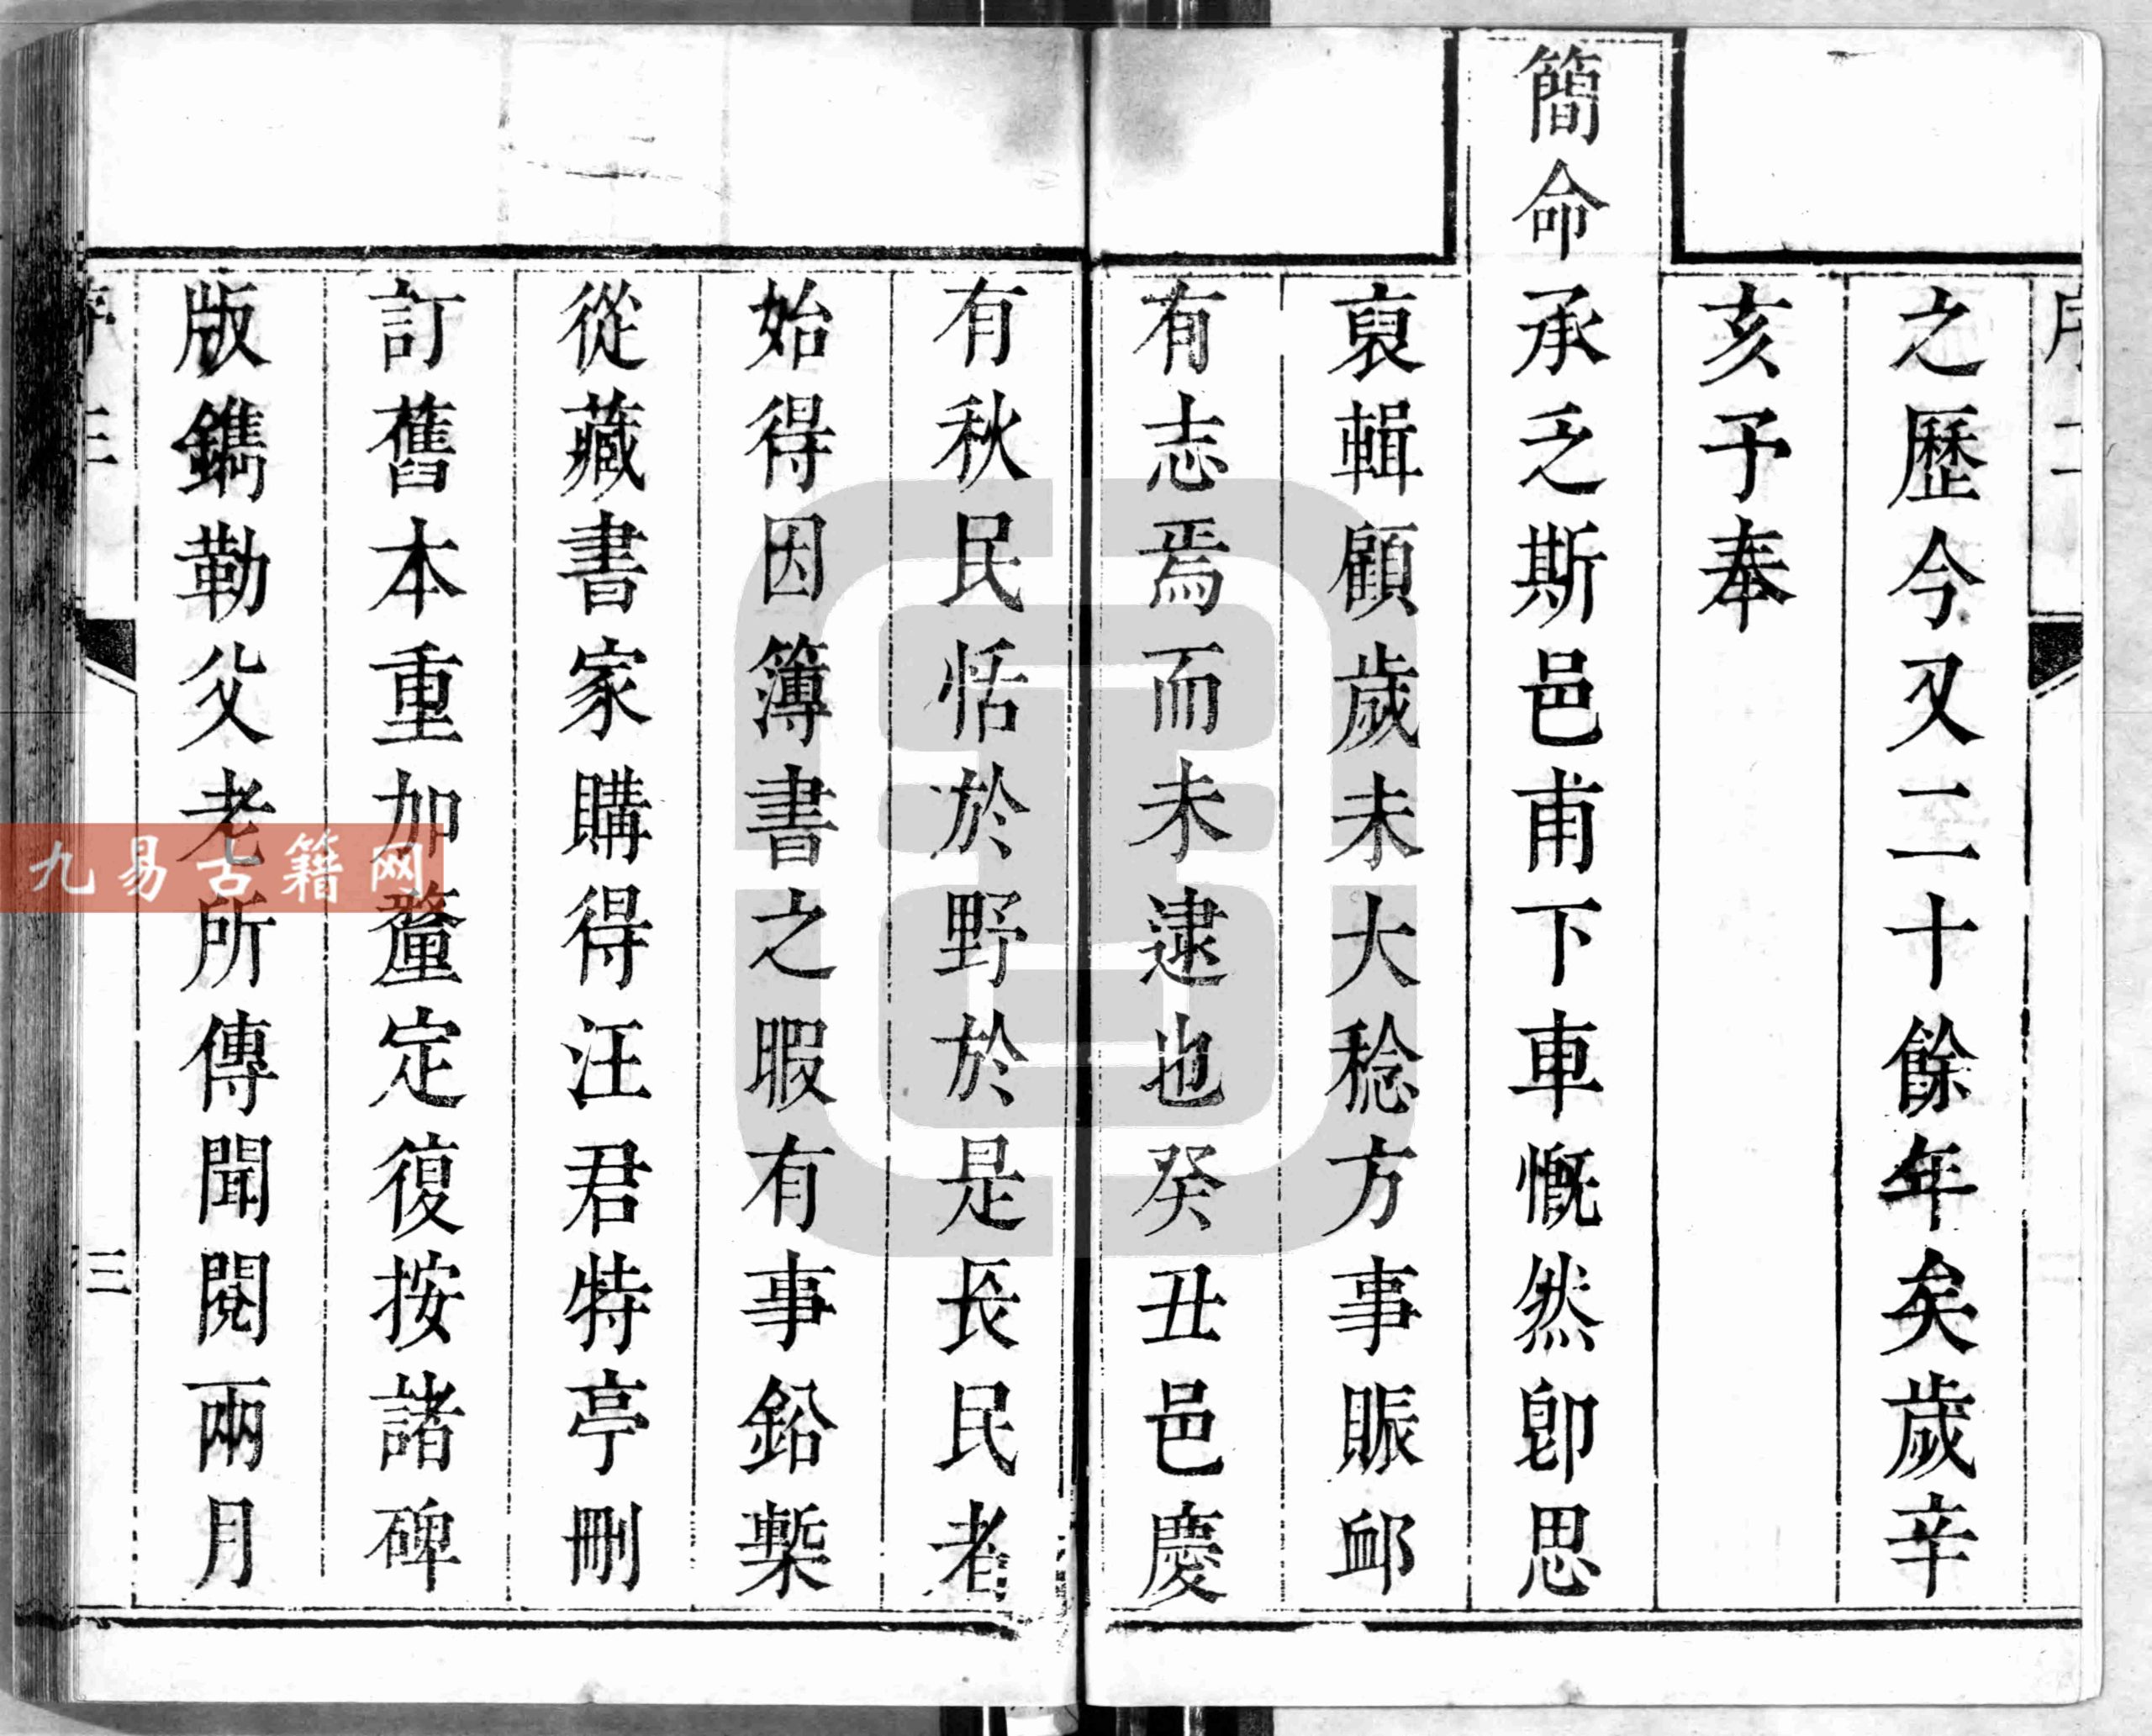 之歷今又二十餘年矣歲辛
亥予奉
簡命承乏斯邑甫下車慨然卽思
裒輯顧歲未大稔方事賑卹
有志焉而未逮也癸丑邑慶
有秋民恬於野於是長民者
始得因簿書之暇有事鉛槧
從藏書家購得汪君特亭刪
訂舊本重加釐定復按諸碑
版鐫勒父老所傳聞閱兩月
三
九易古籍网